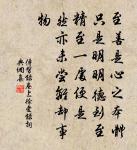 至善是心之本體
只是明明德到
至精至一處便是
然亦未嘗離却事
物
傳習錄卷上徐愛錄詞
典網集